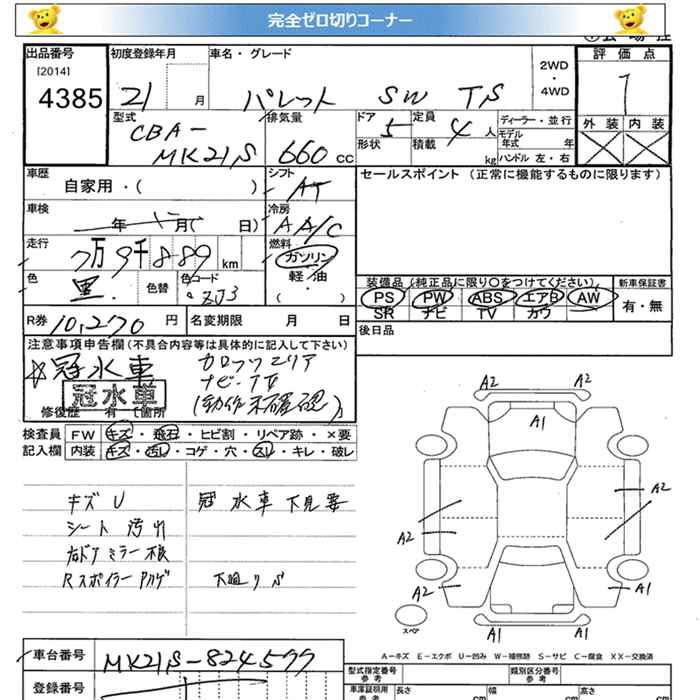 完全ゼロ切りコーナー
出品番号
[2014]
4385
初度登録年月
21 月
車名・グレード
パレット SW TS
2WD
・
4WD
評価点
外装 内装
型式
CBA-
MK21S
排気量
660 CC
ドア 5
形状
定員 4 人
積載 kg
ディーラー・並行
モデル
年式 年
ハンドル 左・右
車歴
自家用・( )
シフト
AT
セールスポイント (正常に機能するものに限ります)
車検
年 月( 日)
冷房
A A/C
走行
7万9千889 km
燃料
ガソリン
軽油
・
( )
色
黒
色替
色コード
ZJ3
装備品(純正品に限り○をつけてください)
PS PW ABS エアB AW
SR ナビ TV カワ
新車保証書
有・無
R券 10,270 円
名変期限 月 日
後日品
注意事項申告欄(不具合内容等は具体的に記入して下さい)
冠水車
冠水車
カロッツェリア
ナビ・TV
(動作未確認)
修復歴 有 箇所
検査員
記入欄
FW キズ・飛石・ヒビ割・リペア跡・×要
内装 キズ・汚れ・コゲ・穴・スレ・キレ・破レ
キズU
シート 汚れ
右ドアミラー不良
Rスポイラー
冠水車 下見要
下廻りS
A2 A2
A1
A2
A2
A2 A1
A1 A1
スペア
A-キズ E-エクボ U-凹み W-補修跡 S-サビ C-腐食 XX-交換済
車台番号
MK21S-824577
登録番号
型式指定番号
参考
類別区分番号
参考
車庫証明用
参考
長さ cm
幅 cm
高さ cm